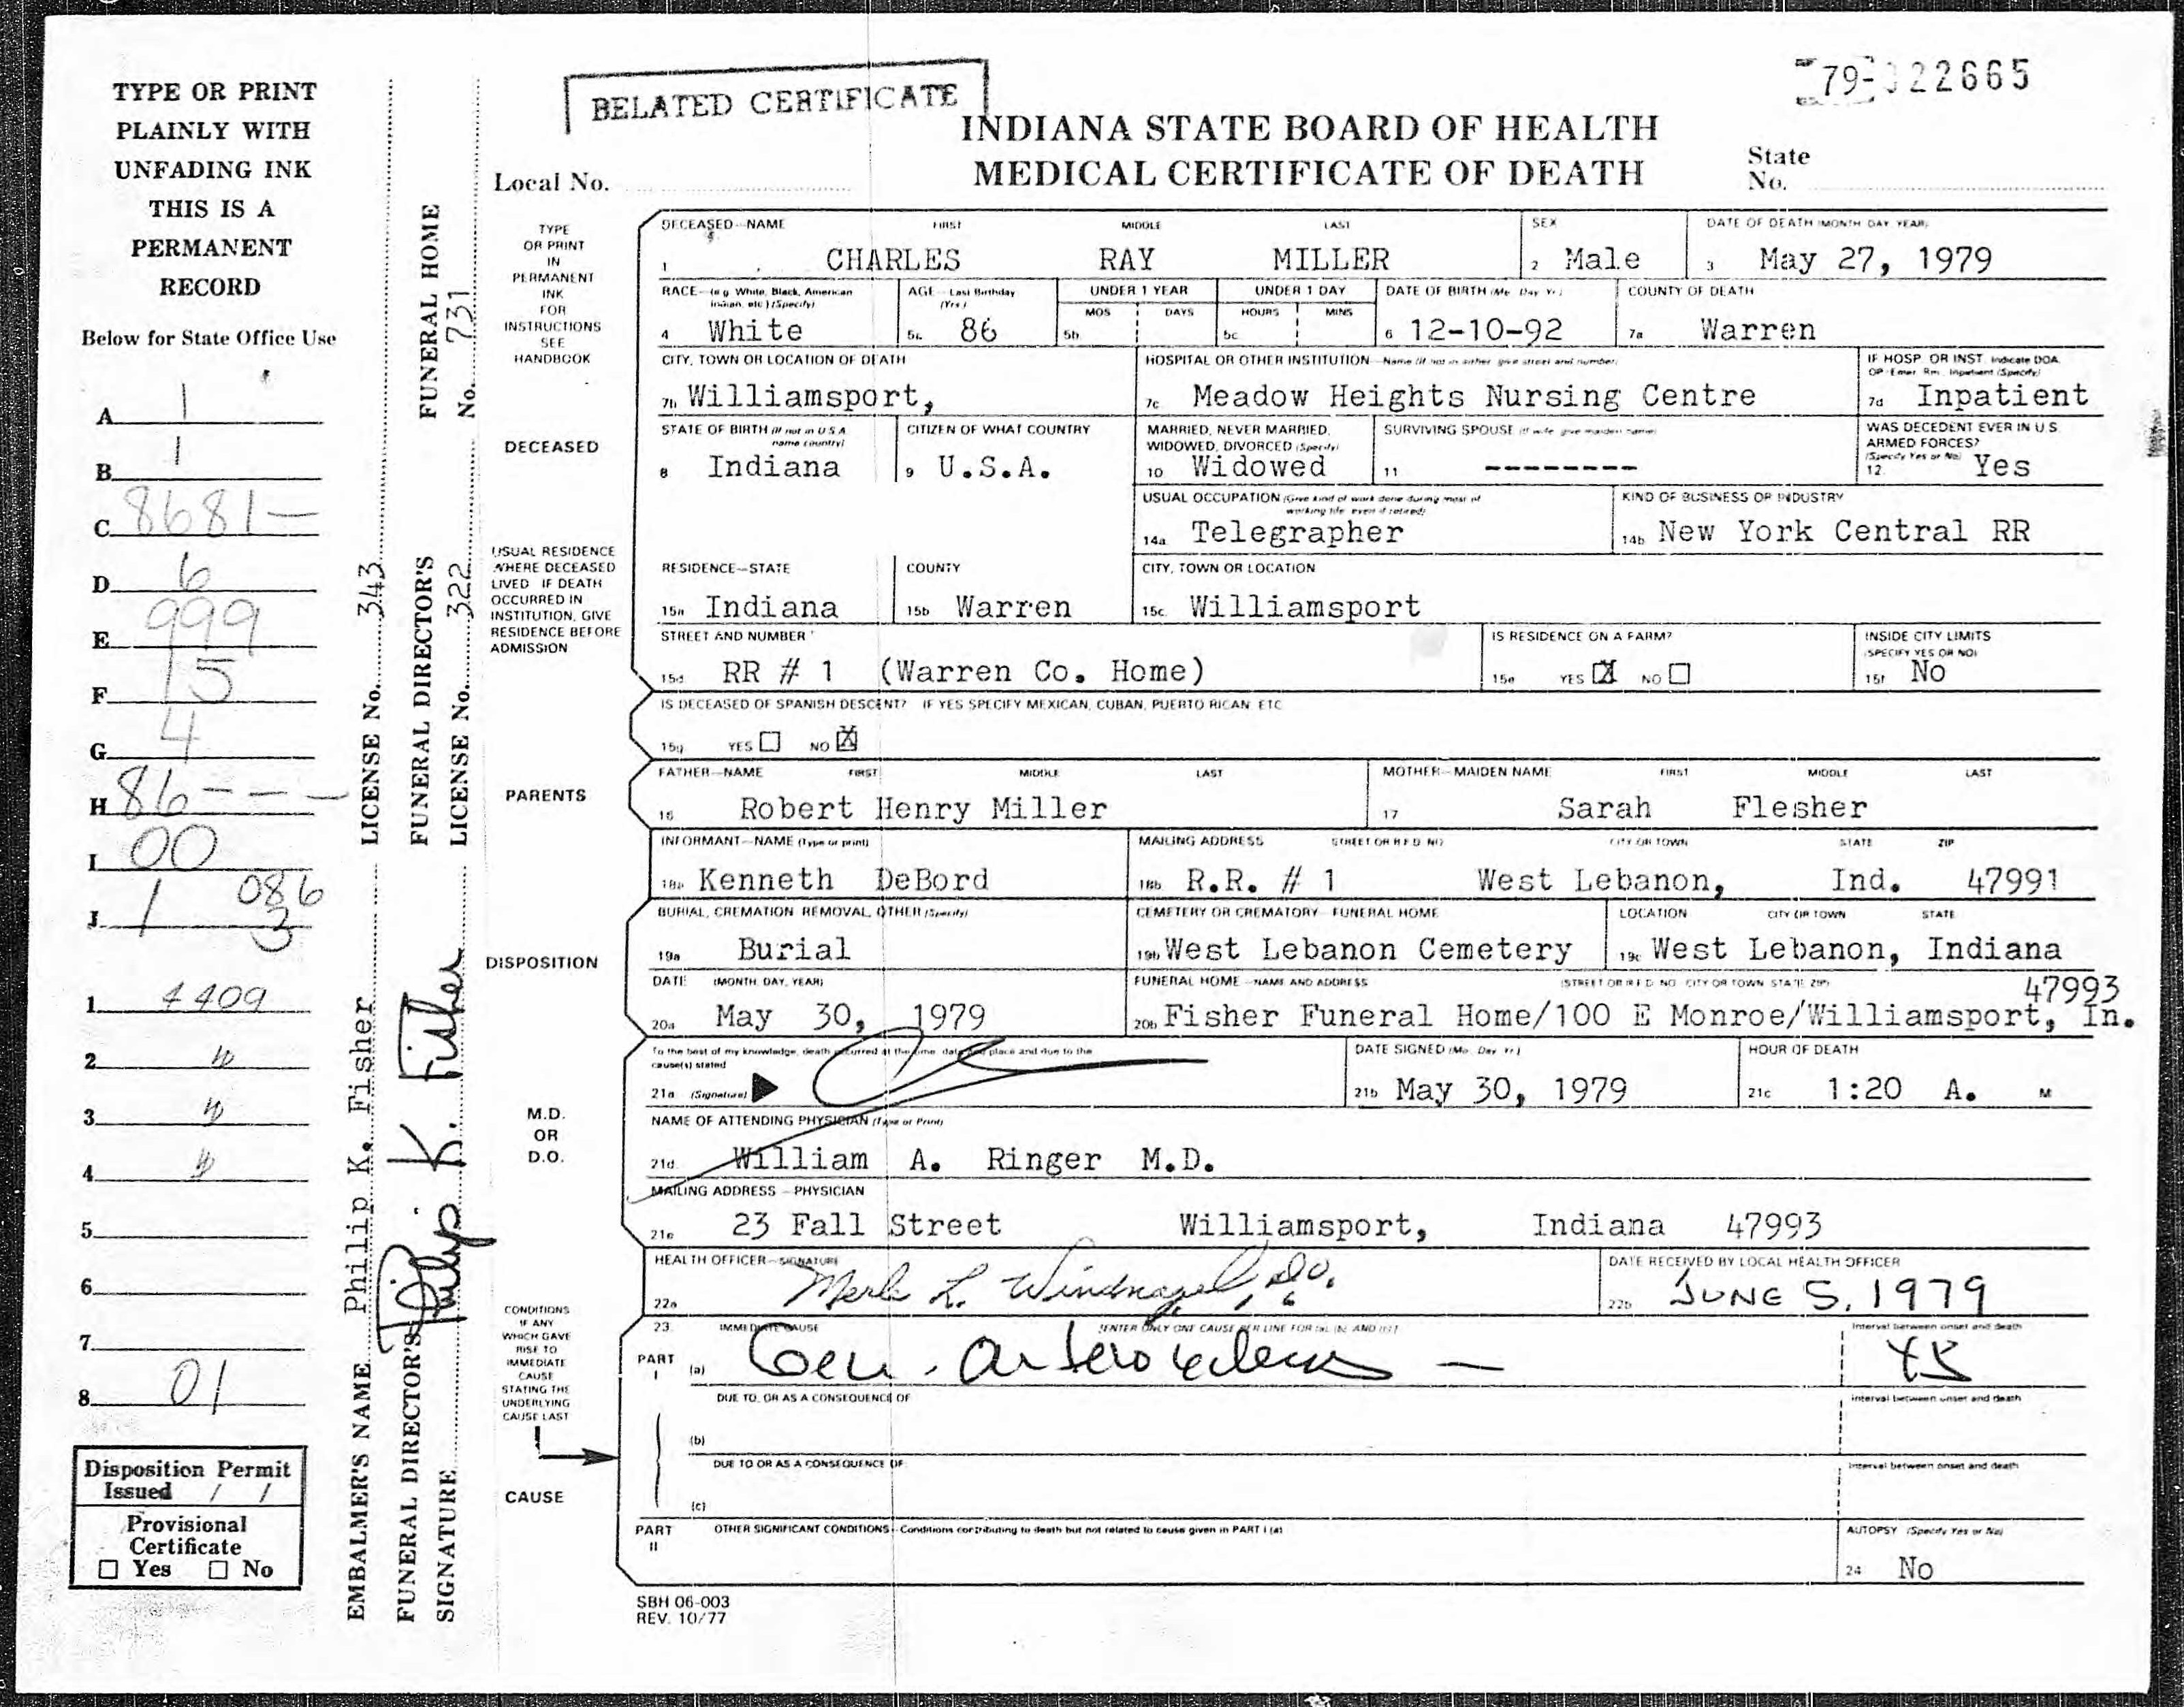 TYPE OR PRINT
PLAINLY WITH
UNFADING INK
THIS IS A
PERMANENT
RECORD
Below for State Office Use
A 1
B 1
C 8681-
D 6
E 999
F 15
G 4
H 86---
I 00
086
J 1 3
1 4409
2
3
4
5
6
7
8 01
Disposition Permit
Issued / /
Provisional
Certificate
☐ Yes ☐ No
EMBALMER'S NAME Philip K. Fisher LICENSE No. 343
FUNERAL DIRECTOR'S
SIGNATURE Philip K. Fisher
FUNERAL DIRECTOR'S
LICENSE No. 322
FUNERAL HOME
No. 731
BELATED CERTIFICATE
79-022665
INDIANA STATE BOARD OF HEALTH
MEDICAL CERTIFICATE OF DEATH
Local No.
State
No.
TYPE
OR PRINT
IN
PERMANENT
INK
FOR
INSTRUCTIONS
SEE
HANDBOOK
DECEASED—NAME FIRST MIDDLE LAST SEX DATE OF DEATH (MONTH DAY YEAR)
1 CHARLES RAY MILLER 2 Male 3 May 27, 1979
RACE—(e.g. White, Black, American Indian, etc.) (Specify) AGE—Last Birthday (Yrs.) UNDER 1 YEAR UNDER 1 DAY DATE OF BIRTH (Mo. Day Yr.) COUNTY OF DEATH
MOS DAYS HOURS MINS
4 White 5a 86 5b 5c 6 12-10-92 7a Warren
CITY, TOWN OR LOCATION OF DEATH HOSPITAL OR OTHER INSTITUTION—Name (If not in either give street and number) IF HOSP. OR INST. Indicate DOA, OP-Emer. Rm., Inpatient (Specify)
7b Williamsport, 7c Meadow Heights Nursing Centre 7d Inpatient
DECEASED
STATE OF BIRTH (If not in U.S.A. name country) CITIZEN OF WHAT COUNTRY MARRIED, NEVER MARRIED, WIDOWED, DIVORCED (Specify) SURVIVING SPOUSE (If wife give maiden name) WAS DECEDENT EVER IN U.S. ARMED FORCES? (Specify Yes or No)
8 Indiana 9 U.S.A. 10 Widowed 11 --------- 12. Yes
USUAL OCCUPATION (Give kind of work done during most of working life even if retired) KIND OF BUSINESS OR INDUSTRY
14a Telegrapher 14b New York Central RR
USUAL RESIDENCE
WHERE DECEASED
LIVED IF DEATH
OCCURRED IN
INSTITUTION, GIVE
RESIDENCE BEFORE
ADMISSION
RESIDENCE—STATE COUNTY CITY, TOWN OR LOCATION
15a Indiana 15b Warren 15c Williamsport
STREET AND NUMBER IS RESIDENCE ON A FARM? INSIDE CITY LIMITS (SPECIFY YES OR NO)
15d RR # 1 (Warren Co. Home) 15e YES ☒ NO ☐ 15f No
IS DECEASED OF SPANISH DESCENT? IF YES SPECIFY MEXICAN, CUBAN, PUERTO RICAN ETC
15g YES ☐ NO ☒
PARENTS
FATHER—NAME FIRST MIDDLE LAST MOTHER—MAIDEN NAME FIRST MIDDLE LAST
16 Robert Henry Miller 17 Sarah Flesher
INFORMANT—NAME (Type or print) MAILING ADDRESS STREET OR R.F.D. NO CITY OR TOWN STATE ZIP
18a Kenneth DeBord 18b R.R. # 1 West Lebanon, Ind. 47991
DISPOSITION
BURIAL, CREMATION REMOVAL, OTHER (Specify) CEMETERY OR CREMATORY—FUNERAL HOME LOCATION CITY OR TOWN STATE
19a Burial 19b West Lebanon Cemetery 19c West Lebanon, Indiana
DATE (MONTH, DAY, YEAR) FUNERAL HOME—NAME AND ADDRESS (STREET OR R.F.D. NO. CITY OR TOWN STATE ZIP) 47993
20a May 30, 1979 20b Fisher Funeral Home/100 E Monroe/Williamsport, In.
M.D.
OR
D.O.
To the best of my knowledge, death occurred at the time, date and place and due to the cause(s) stated DATE SIGNED (Mo. Day Yr.) HOUR OF DEATH
21a (Signature) 21b May 30, 1979 21c 1:20 A. M
NAME OF ATTENDING PHYSICIAN (Type or Print)
21d William A. Ringer M.D.
MAILING ADDRESS—PHYSICIAN
21e 23 Fall Street Williamsport, Indiana 47993
HEALTH OFFICER—SIGNATURE DATE RECEIVED BY LOCAL HEALTH OFFICER
22a Merle L. Windnagel, D.O. 22b JUNE 5, 1979
CONDITIONS
IF ANY
WHICH GAVE
RISE TO
IMMEDIATE
CAUSE
STATING THE
UNDERLYING
CAUSE LAST
CAUSE
23. IMMEDIATE CAUSE (ENTER ONLY ONE CAUSE PER LINE FOR (a), (b), AND (c)) Interval between onset and death
PART I (a) Gen. Arterosclerosis —
DUE TO, OR AS A CONSEQUENCE OF Interval between onset and death
(b)
DUE TO OR AS A CONSEQUENCE OF Interval between onset and death
(c)
PART II OTHER SIGNIFICANT CONDITIONS—Conditions contributing to death but not related to cause given in PART I (a) AUTOPSY (Specify Yes or No)
24 No
SBH 06-003
REV. 10/77